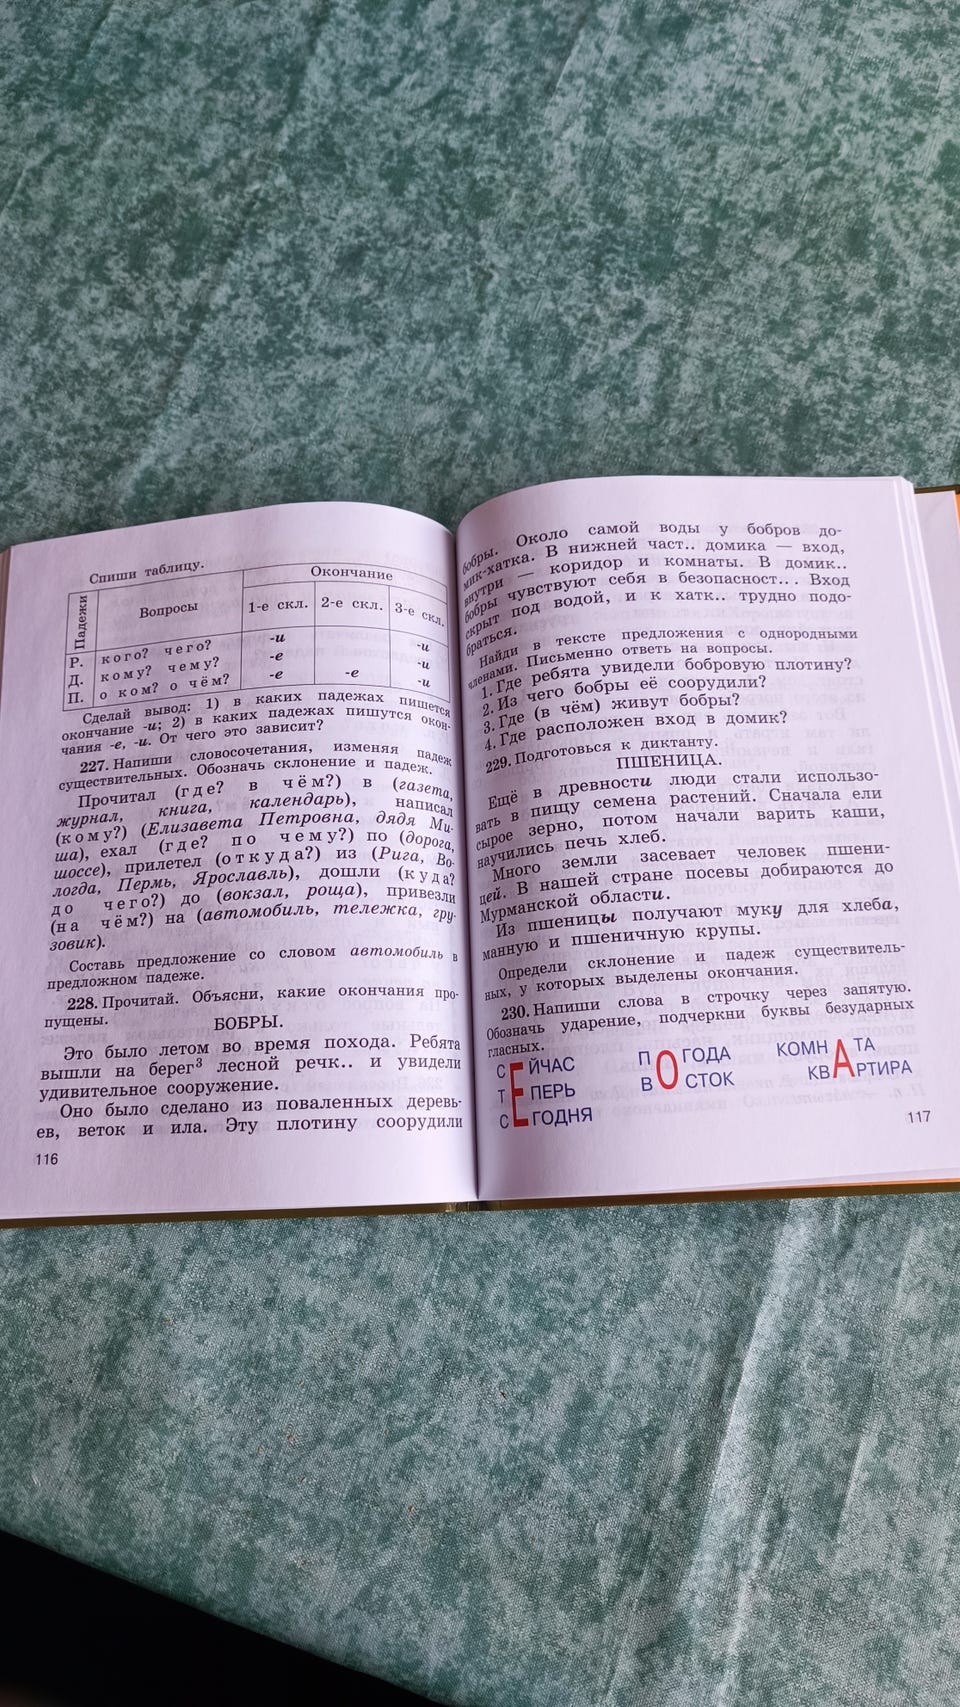 Спиши таблицу.
Падежи
Вопросы
Окончание
1-е скл. 2-е скл. 3-е скл.
Р. кого? чего? -и -и
Д. кому? чему? -е -и
П. о ком? о чём? -е -е -и
Сделай вывод: 1) в каких падежах пишется
окончание -и; 2) в каких падежах пишутся окон-
чания -е, -и. От чего это зависит?
227. Напиши словосочетания, изменяя падеж
существительных. Обозначь склонение и падеж.
Прочитал (где? в чём?) в (газета,
журнал, книга, календарь), написал
(кому?) (Елизавета Петровна, дядя Ми-
ша), ехал (где? по чему?) по (дорога,
шоссе), прилетел (откуда?) из (Рига, Во-
логда, Пермь, Ярославль), дошли (куда?
до чего?) до (вокзал, роща), привезли
(на чём?) на (автомобиль, тележка, гру-
зовик).
Составь предложение со словом автомобиль в
предложном падеже.
228. Прочитай. Объясни, какие окончания про-
пущены.
БОБРЫ.
Это было летом во время похода. Ребята
вышли на берег³ лесной речк.. и увидели
удивительное сооружение.
Оно было сделано из поваленных деревь-
ев, веток и ила. Эту плотину соорудили
116
бобры. Около самой воды у бобров до-
мик-хатка. В нижней част.. домика — вход,
внутри — коридор и комнаты. В домик..
бобры чувствуют себя в безопасност... Вход
скрыт под водой, и к хатк.. трудно подо-
браться.
Найди в тексте предложения с однородными
членами. Письменно ответь на вопросы.
1. Где ребята увидели бобровую плотину?
2. Из чего бобры её соорудили?
3. Где (в чём) живут бобры?
4. Где расположен вход в домик?
229. Подготовься к диктанту.
ПШЕНИЦА.
Ещё в древности люди стали использо-
вать в пищу семена растений. Сначала ели
сырое зерно, потом начали варить каши,
научились печь хлеб.
Много земли засевает человек пшени-
цей. В нашей стране посевы добираются до
Мурманской области.
Из пшеницы получают муку для хлеба,
манную и пшеничную крупы.
Определи склонение и падеж существитель-
ных, у которых выделены окончания.
230. Напиши слова в строчку через запятую.
Обозначь ударение, подчеркни буквы безударных
гласных.
СЕЙЧАС ПОГОДА КОМНАТА
ТЕПЕРЬ ВОСТОК КВАРТИРА
СЕГОДНЯ
117